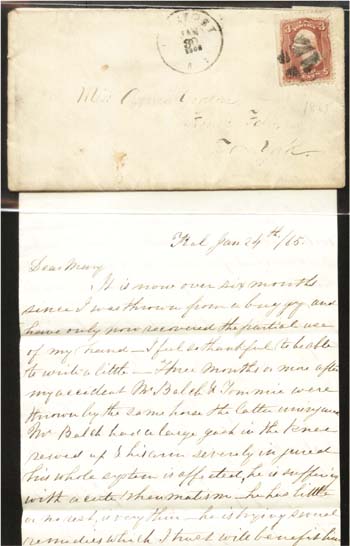 JAN
Miss
New York.
1865
Jan 24th /65.
Dear Mary
It is now over six months
since I was thrown from a buggy and
have only now recovered the partial use
of my hand – I feel so thankful to be able
to write a little – Three months or more after
my accident Mr Balch & Tommie were
thrown by the same horse the latter uninjured
Mr Balch had a large gash in the knee
sewed up & his arm severely injured
his whole system is affected, he is suffering
with acute rheumatism – he has little
or no rest, is very thin – he is trying some
remedies which I trust will benefit him